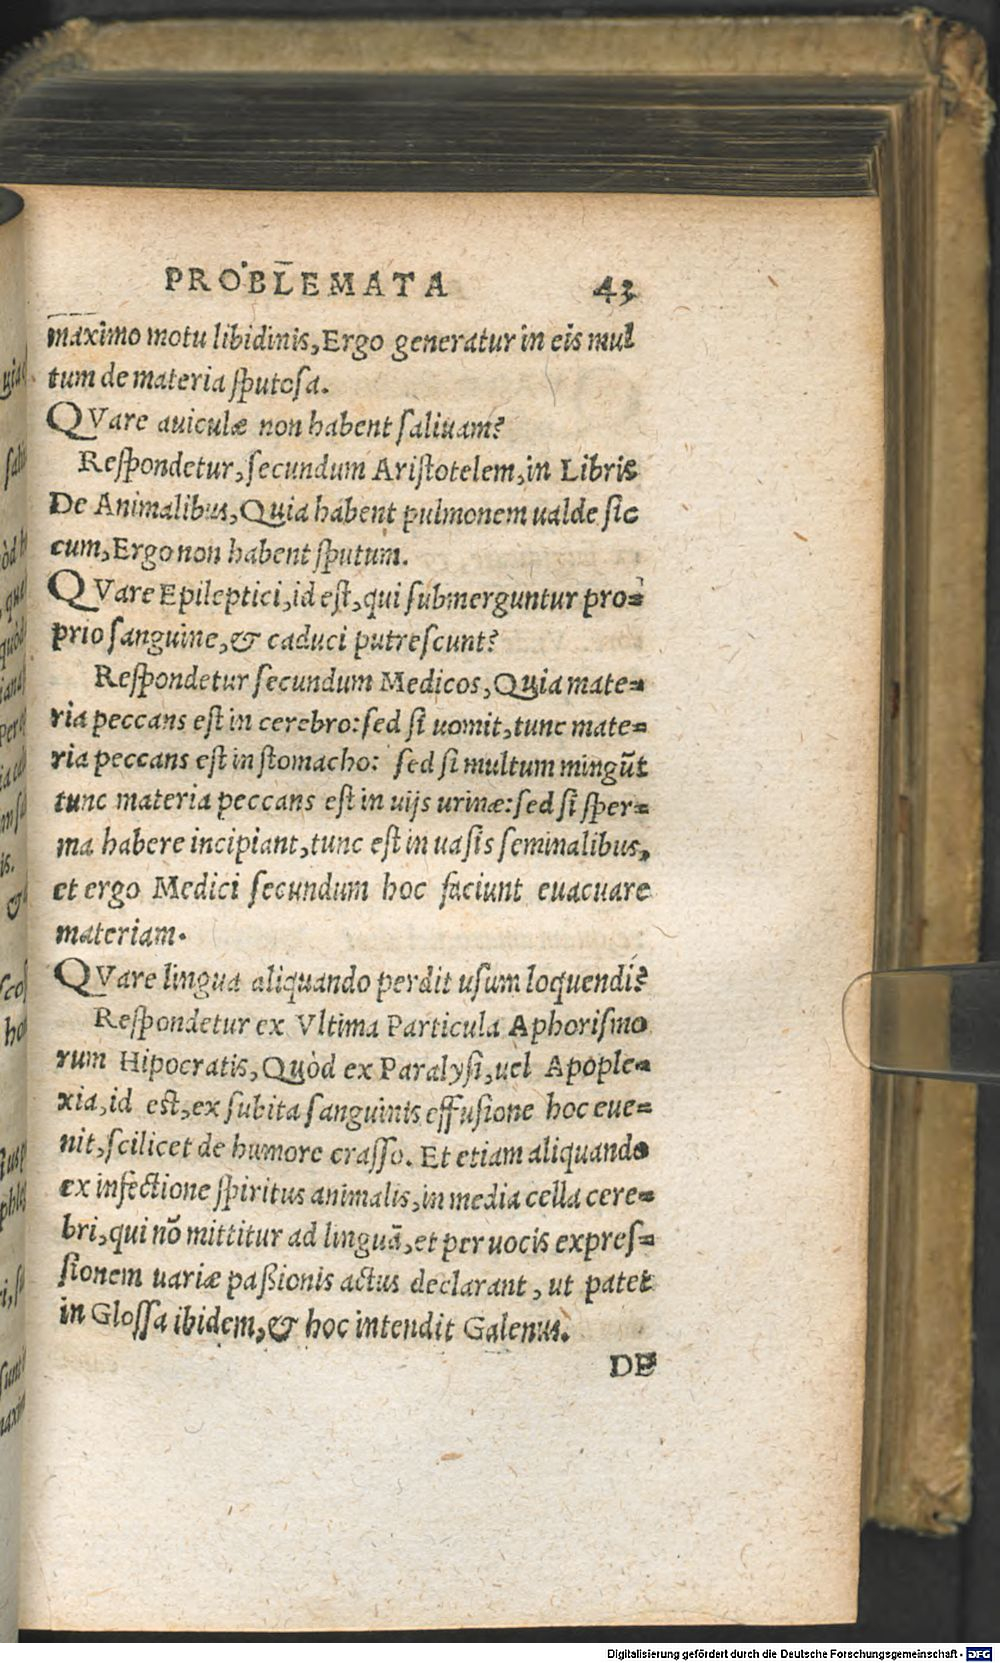 PROBLEMATA 43
maximo motu libidinis, Ergo generatur in eis mul
tum de materia sputosa.
QVare auiculæ non habent saliuam?
Respondetur, secundum Aristotelem, in Libris
De Animalibus, Quia habent pulmonem ualde sic
cum, Ergo non habent sputum.
QVare Epileptici, id est, qui submerguntur pro=
prio sanguine, & caduci putrescunt?
Respondetur secundum Medicos, Quia mate=
ria peccans est in cerebro: sed si uomit, tunc mate=
ria peccans est in stomacho: sed si multum mingūt
tunc materia peccans est in uijs urinæ: sed si sper=
ma habere incipiant, tunc est in uasis seminalibus,
et ergo Medici secundum hoc faciunt euacuare
materiam.
QVare lingua aliquando perdit usum loquendi?
Respondetur ex Vltima Particula Aphorismo
rum Hipocratis, Quòd ex Paralysi, uel Apople=
xia, id est, ex subita sanguinis effusione hoc eue=
nit, scilicet de humore crasso. Et etiam aliquando
ex infectione spiritus animalis, in media cella cere=
bri, qui nō mittitur ad linguā, et per uocis expres=
sionem uariæ paßionis actus declarant, ut patet
in Glossa ibidem, & hoc intendit Galenus.
DE
Digitalisierung gefördert durch die Deutsche Forschungsgemeinschaft - DFG